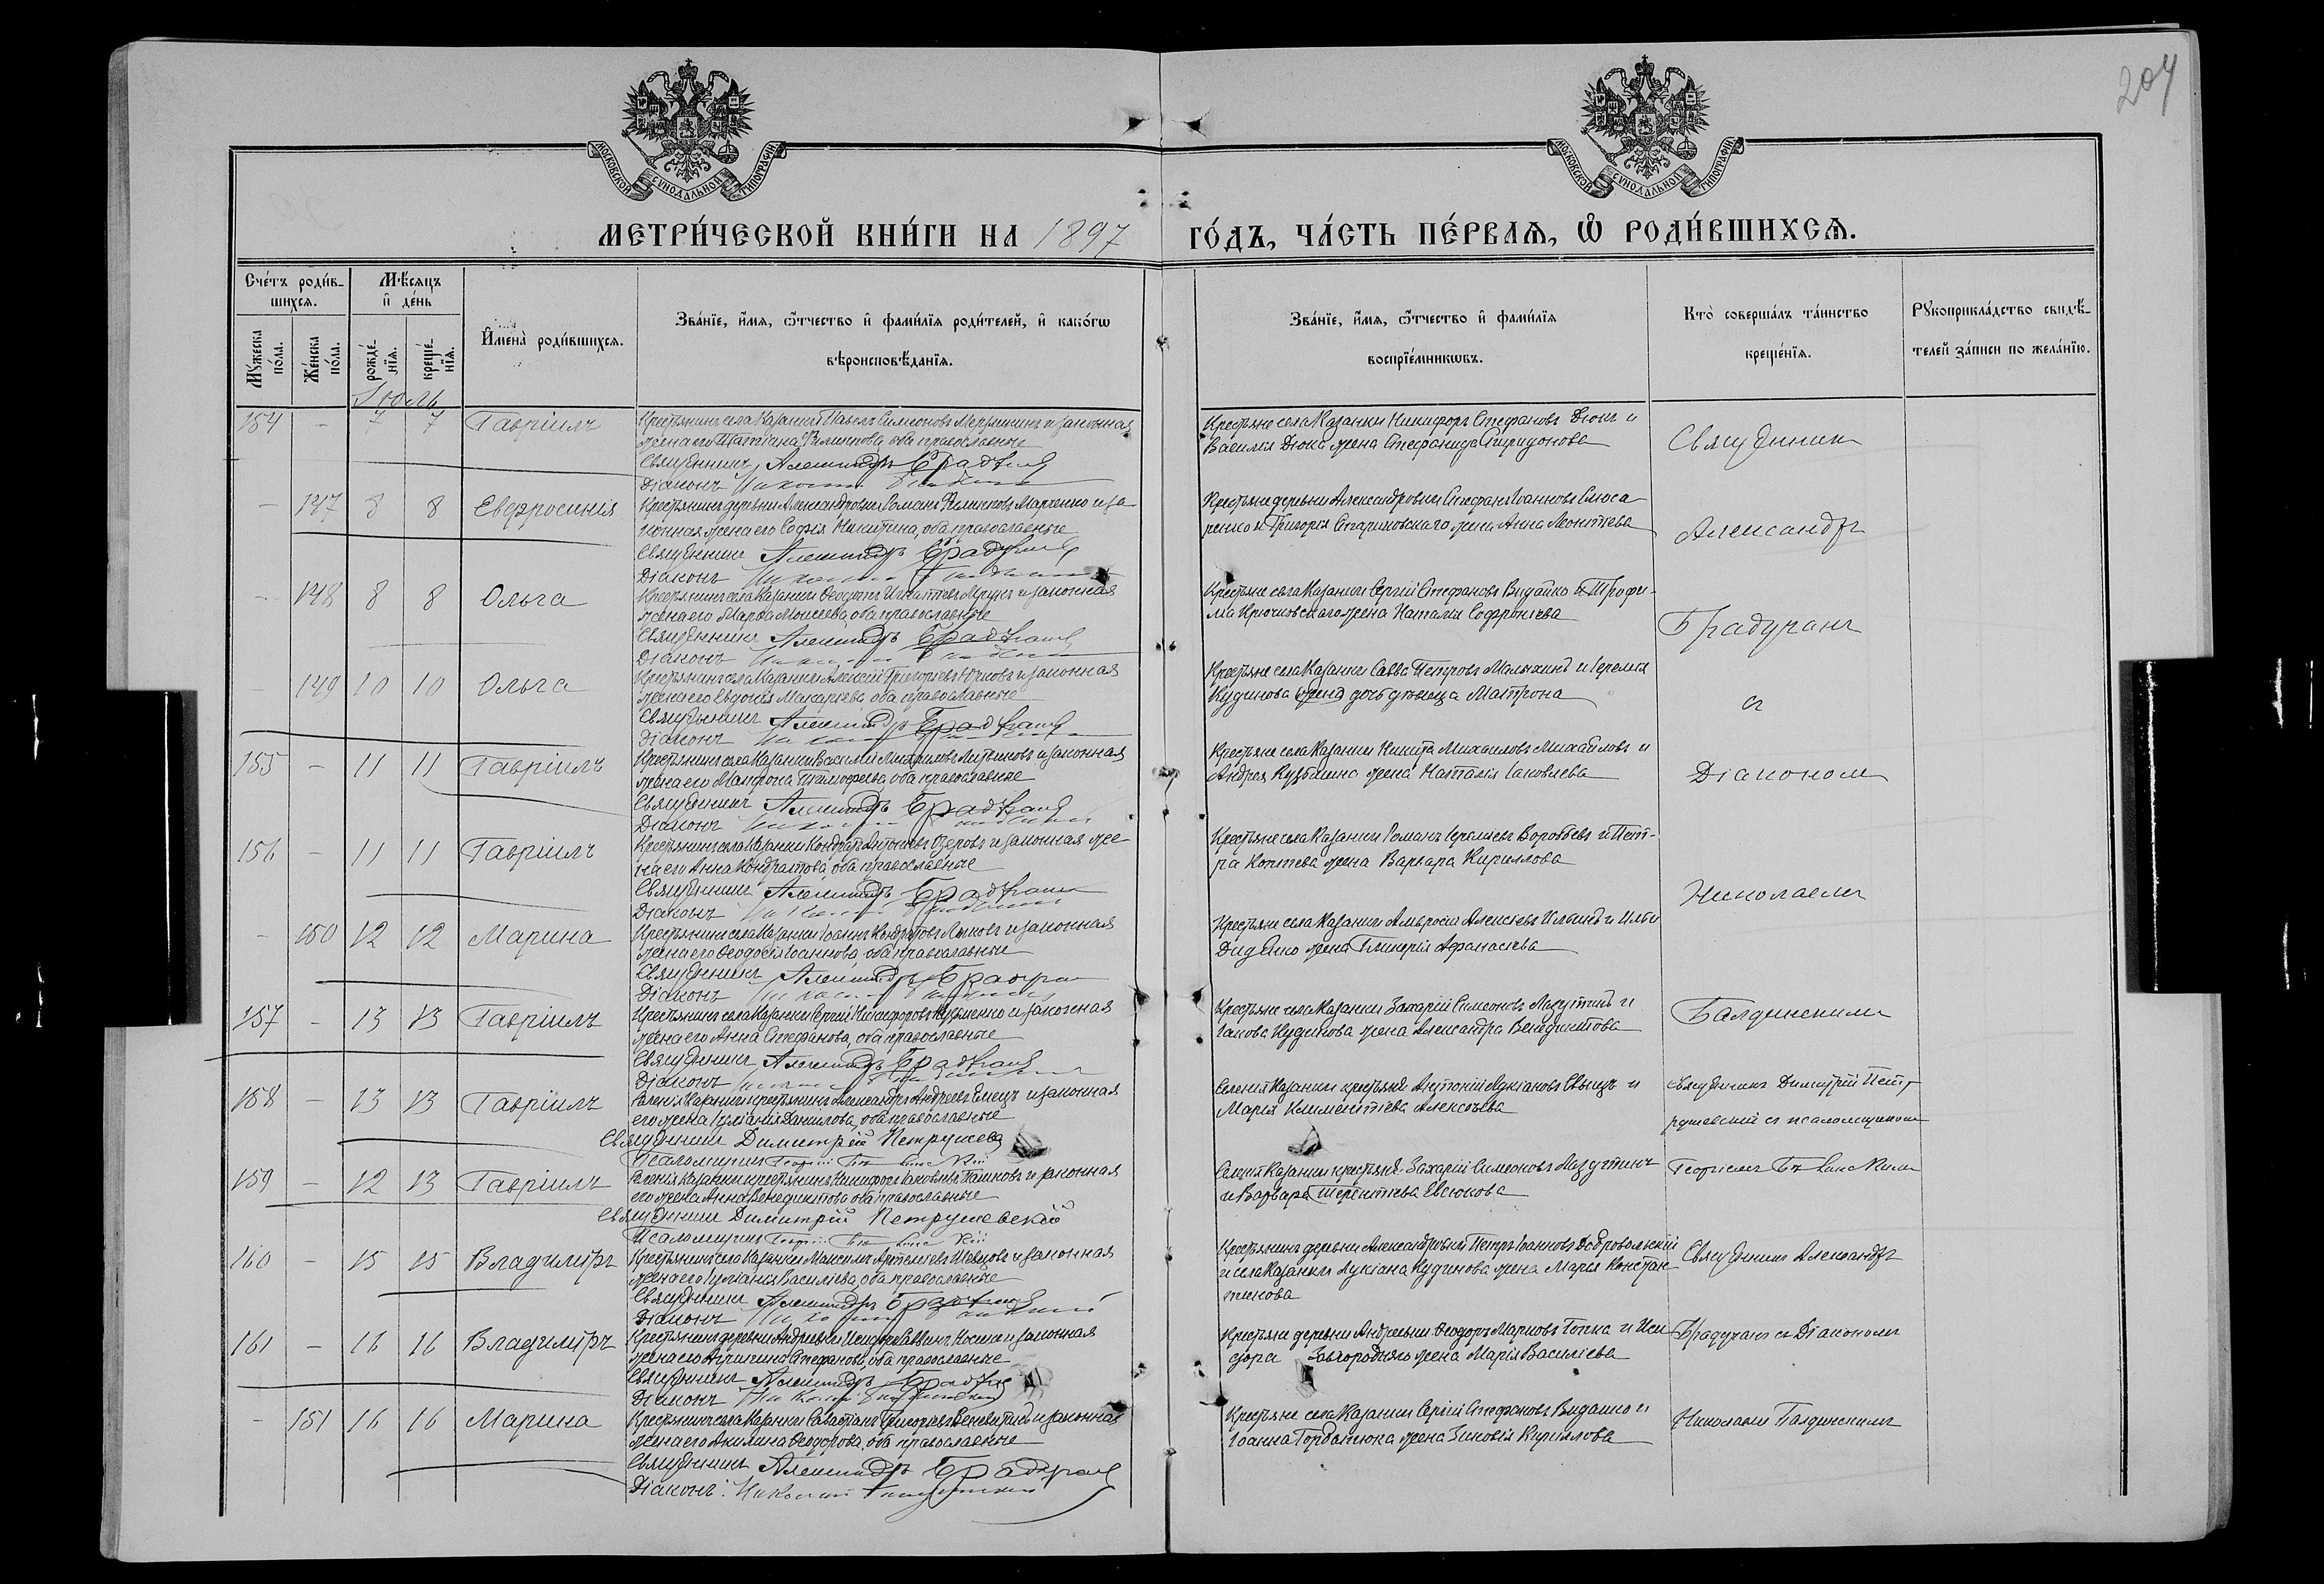 204
МОСКОВСКОЙ СѴНОДАЛЬНОЙ ТИПОГРАФІИ
МОСКОВСКОЙ СѴНОДАЛЬНОЙ ТИПОГРАФІИ
МЕТРИ́ЧЕСКОЙ КНИ́ГИ НА 1897 ГО́ДЪ, ЧА́СТЬ ПЕ́РВАѦ, Ѡ҆ РОДИ́ВШИХСѦ.
Сче́тъ роди́в-
шихсѧ.
Мѣ́сѧцъ
и҆ де́нь
Мꙋ́жеска по́ла.
Же́нска по́ла.
рожде́-нїѧ.
креще́-нїѧ.
И҆мена̀ роди́вшихсѧ.
Зва́нїе, и҆́мѧ, ѻ҆́тчество и҆ фами́лїѧ роди́телей, и҆ како́гѡ
вѣроисповѣ́данїѧ.
Зва́нїе, и҆́мѧ, ѻ҆́тчество и҆ фами́лїѧ
воспрїе́мникѡвъ.
Кто̀ соверша́лъ та́инство
креще́нїѧ.
Рꙋкоприкла́дство свидѣ́-
телей за́писи по жела́нїю.
Іюль
154 - 7 7 Гавріилъ
Крестьянинъ села Казанки Павелъ Симеоновъ и законная
жена его Татіана Филиппова, оба православные
Священникъ Александръ Брадучанъ
Діаконъ Николай
Крестьяне села Казанки Никифоръ Стефановъ Дюкъ и
Василія Дюка жена Стефанида Спиридонова
Священник
- 147 8 8 Евфросинія
Крестьянинъ деревни Александровки Романъ Филиповъ Марченко и за-
конная жена его Софія Никитина, оба православные
Священникъ Александръ Брадучанъ
Діаконъ Николай
Крестьяне деревни Александровки Стефанъ Іоанновъ Слюса-
ренко и Григорія Стариковскаго жена Анна Леонтіева
Александръ
- 148 8 8 Ольга
Крестьянинъ села Казанки Игнатіевъ и законная
жена его Марфа Моисеева, оба православные
Священникъ Александръ Брадучанъ
Діаконъ Николай
Крестьяне села Казанки Сергій Стефановъ Видайко и Трофи-
ма Крючковскаго жена Наталія Софроніева
Брадучанъ
149 10 10 Ольга
Крестьянинъ села Казанки Алексій Григорьевъ и законная
жена его Евдокія Макаріева, оба православные
Священникъ Александръ Брадучанъ
Діаконъ Николай
Крестьяне села Казанки Савва Петровъ Малыхинъ и Іеремія
Кудинова жена дочь дѣвица Матрона
съ
155 - 11 11 Гавріилъ
Крестьянинъ села Казанки Василій Михаиловъ Литвиновъ и законная
жена его Матрона Тимофеева, оба православные
Священникъ Александръ Брадучанъ
Діаконъ Николай
Крестьяне села Казанки Никита Михаиловъ Михайловъ и
Андрея Кузьмина жена Наталія Іаковлева
Діакономъ
156 - 11 11 Гавріилъ
Крестьянинъ села Казанки Кондратъ Антоновъ Озеровъ и законная же-
на его Анна Кондратова, оба православные
Священникъ Александръ Брадучанъ
Діаконъ Николай
Крестьяне села Казанки Романъ Іереміевъ Воробьевъ и Пет-
ра Коптева жена Варвара Кириллова
Николаемъ
- 150 12 12 Марина
Крестьянинъ села Казанки Іоаннъ Кондратовъ и законная
жена его Феодосія Іоаннова, оба православные
Священникъ Александръ
Діаконъ Николай
Крестьяне села Казанки Амвросій Алексіевъ Ильинъ и Иліи
Диденко жена Гликерія Афанасіева
157 - 13 13 Гавріилъ
Крестьянинъ села Казанки Сергій Никифоровъ и законная
жена его Анна Стефанова, оба православные
Священникъ Александръ Брадучанъ
Діаконъ Николай
Крестьяне села Казанки Захарій Симеоновъ Лазутинъ и
Іакова Кудинова жена Александра Венедиктова
Балдинскимъ
158 - 13 13 Гавріилъ
Селенія Казанки крестьянинъ Александръ Андреевъ Емецъ и законная
его жена Іуліанія Данилова, оба православные
Священникъ Димитрій Петрушевс
Псаломщикъ Георгій
Селенія Казанки крестьяне Антоній Лукіановъ и
Марія Климентіева Алексѣева
Священникъ Димитрій Пет-
рушевскій съ псаломщикомъ
159 - 12 13 Гавріилъ
Селенія Казанки крестьянинъ Никифоръ Іаковлевъ Пашковъ и законная
его жена Анна Венедиктова, оба православные
Священникъ Димитрій Петрушевскій
Псаломщикъ Георгій
Селенія Казанки крестьяне Захарій Симеоновъ Лазутинъ
и Варвара Терентіева Евсюкова
Георгіемъ
160 - 15 15 Владиміръ
Крестьянинъ села Казанки Максимъ Артеміевъ Шевцовъ и законная
жена его Іуліанія Василіева, оба православные
Священникъ Александръ Брадучанъ
Діаконъ Николай
Крестьянинъ деревни Александровки Петръ Іоанновъ Добровольскій
и села Казанки Лукіана Кудинова жена Марія Констан-
тинова
Священникъ Александръ
161 - 16 16 Владиміръ
Крестьянинъ деревни Андреевки Исидоръ Саввинъ Носко и законная
жена его Агрипина Стефанова, оба православные
Священникъ Александръ Брадучанъ
Діаконъ Николай
Крестьяне деревни Андреевки Феодоръ Марковъ Гопка и Иси-
дора Завгородняго жена Марія Василіева
Брадучанъ съ Діакономъ
- 151 16 16 Марина
Крестьянинъ села Казанки Савастіанъ Григорьевъ и законная
жена его Акилина Феодорова, оба православные
Священникъ Александръ Брадучанъ
Діаконъ Николай
Крестьяне села Казанки Сергій Стефановъ Видайко и
Іоанна Горбанюка жена Зиновія Кириллова
Николаемъ Балдинскимъ